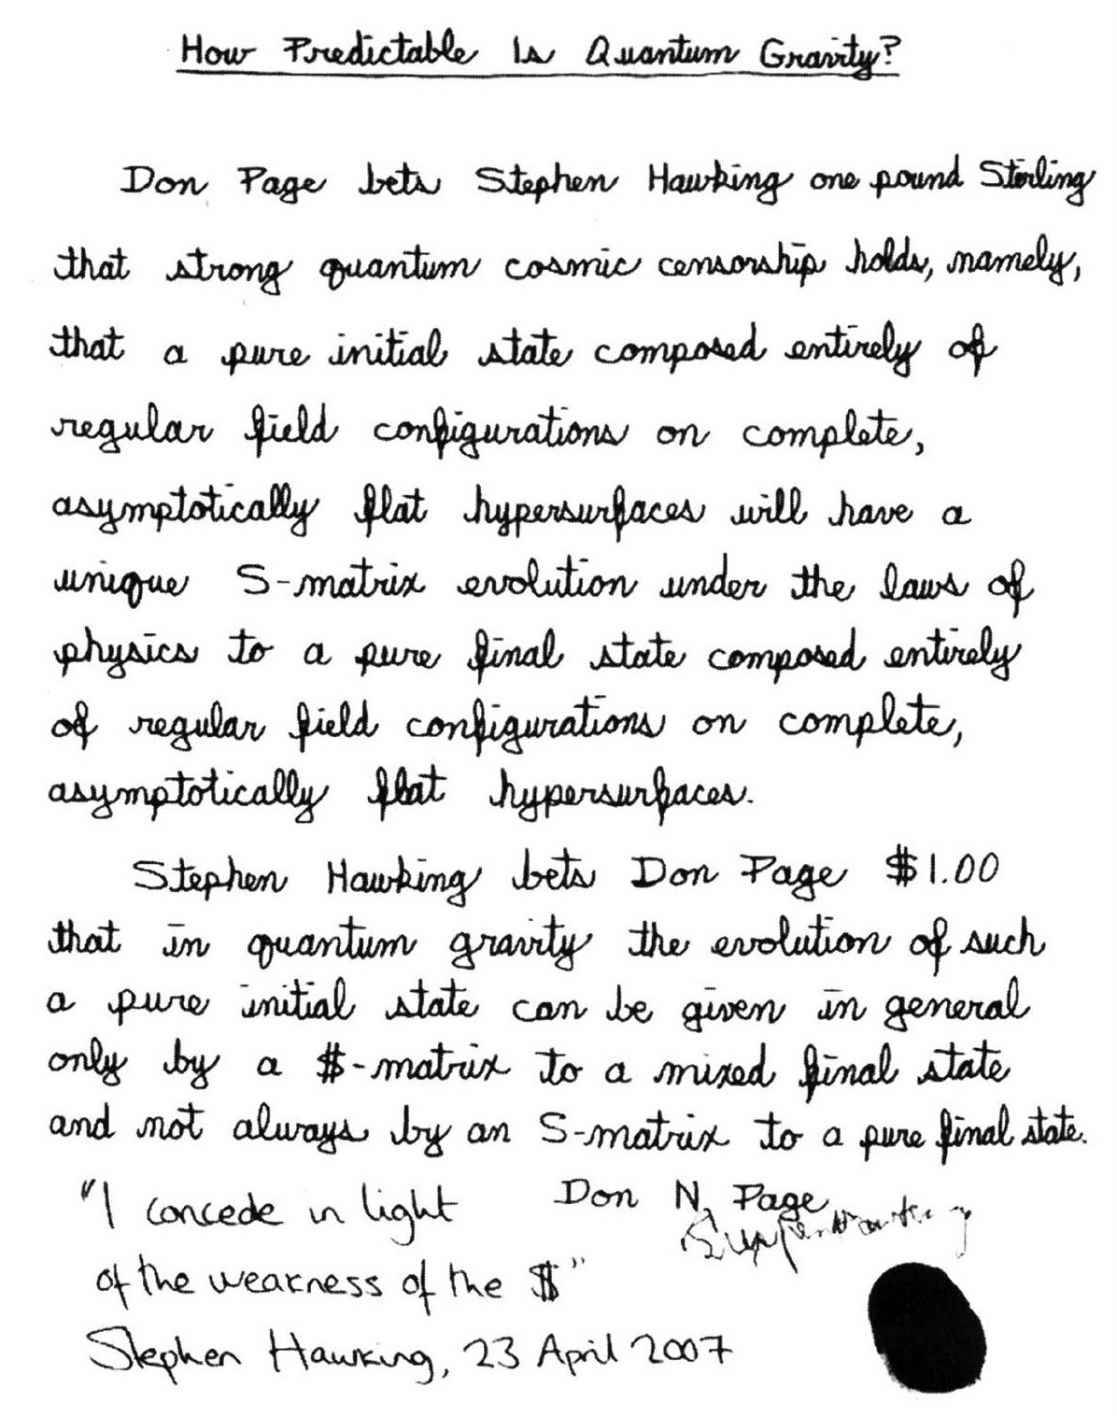 How Predictable Is Quantum Gravity?
Don Page bets Stephen Hawking one pound Sterling
that strong quantum cosmic censorship holds, namely,
that a pure initial state composed entirely of
regular field configurations on complete,
asymptotically flat hypersurfaces will have a
unique S-matrix evolution under the laws of
physics to a pure final state composed entirely
of regular field configurations on complete,
asymptotically flat hypersurfaces.
Stephen Hawking bets Don Page $1.00
that in quantum gravity the evolution of such
a pure initial state can be given in general
only by a $-matrix to a mixed final state
and not always by an S-matrix to a pure final state.
"I concede in light
of the weakness of the $"
Stephen Hawking, 23 April 2007
Don N. Page
Stephen Hawking